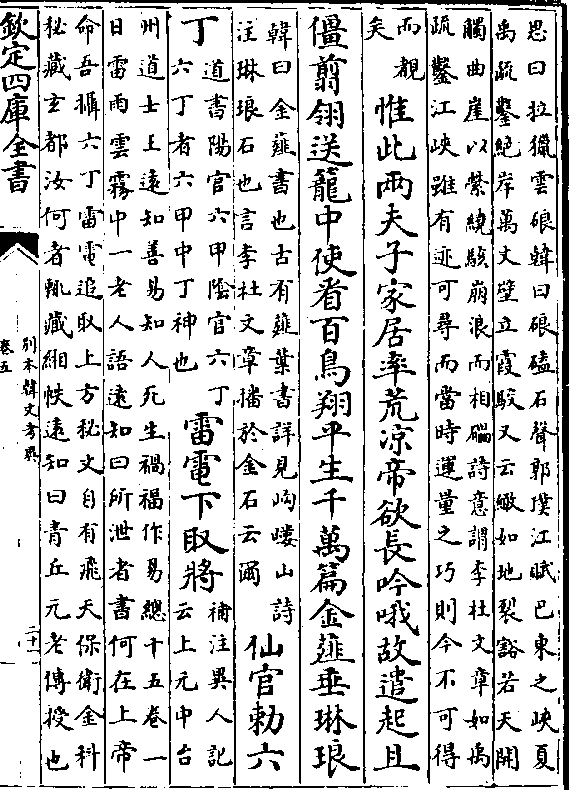 思曰拉獵雲硠韓曰硠磕石聲郭璞江賦巴東之峽夏
禹疏鑿絕岸萬丈壁立霞駁又云如地裂豁若天開
觸曲崖以縈繞駭崩浪而相礧詩意謂李杜文章如禹
疏鑿江峽雖有迹可尋而當時運量之巧則今不可得
而覩
矣
惟此兩夫子家居率荒涼帝欲長吟哦故遣起且
僵翦翎送籠中使看百鳥翔平生千萬篇金薤垂琳琅
韓曰金薤書也古有薤葉書詳見岣嶁山詩
注琳琅石也言李杜文章播於金石云爾
仙官勅六
丁
道書陽官六甲陰官六丁
六丁者六甲中丁神也
雷電下取將
補注異人記
云上元中台
州道士王遠知善易知人死生禍福作易總十五卷一
日雷雨雲霧中一老人語遠知曰所泄者書何在上帝
命吾攝六丁雷電追取上方秘文自有飛天保衛金科
秘藏玄都汝何者輒藏緗帙遠知曰青丘元老傳授也
欽定四庫全書
別本韓文考異
卷五
二十一